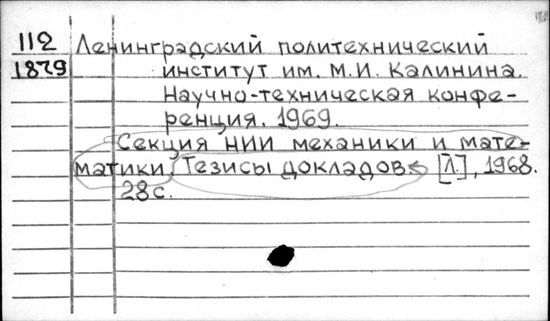 112 Ленинградский политехнический
1829 институт им. М.И. Калинина.
Научно-техническая конфе-
ренция. 1969.
Секция НИИ механики и мате-
матики. Тезисы докладов. [Л.], 1968.
28с.